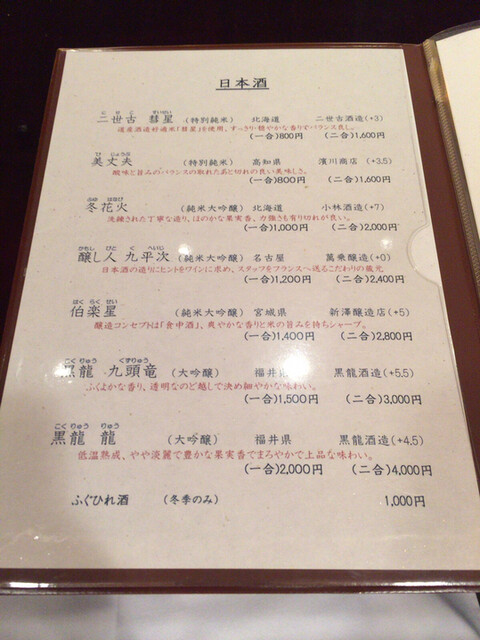 日本酒
にせこ すいせい
二世古 彗星 (特別純米) 北海道 二世古酒造(+3)
道産酒造好適米「彗星」を使用、すっきり・軽やかな香りでバランス良し。
(一合)800円 (二合)1,600円
び じょうふ
美丈夫 (特別純米) 高知県 濱川商店(+3.5)
酸味と旨みのバランスの取れた品と切れの良い美味しさ。
(一合)800円 (二合)1,600円
ふゆ はなび
冬花火 (純米大吟醸) 北海道 小林酒造(+7)
洗練された丁寧な造り、ほのかな果実香、力強さも有り切れが良い。
(一合)1,000円 (二合)2,000円
かもし びと く へいじ
醸し人 九平次 (純米大吟醸) 名古屋 萬乗醸造(+0)
日本酒の造りにヒントをワインに求め、スタッフをフランスへ送るこだわりの蔵元
(一合)1,200円 (二合)2,400円
はく らく せい
伯楽星 (純米大吟醸) 宮城県 新澤醸造店(+5)
醸造コンセプトは「食中酒」、爽やかな香りと米の旨みを持ちシャープ。
(一合)1,400円 (二合)2,800円
こく りゅう くずりゅう
黒龍 九頭竜 (大吟醸) 福井県 黒龍酒造(+5.5)
ふくよかな香り、透明なのど越しで決め細やかな味わい。
(一合)1,500円 (二合)3,000円
こく りゅう りゅう
黒龍 龍 (大吟醸) 福井県 黒龍酒造(+4.5)
低温熟成、やや淡麗で豊かな果実香でまろやかで上品な味わい。
(一合)2,000円 (二合)4,000円
ふぐひれ酒 (冬季のみ) 1,000円